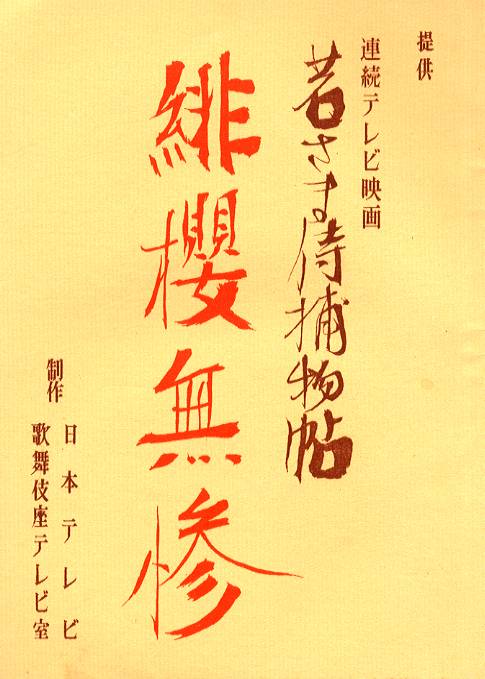 提供
連続テレビ映画
若さま侍捕物帖
緋櫻無惨
制作
日本テレビ
歌舞伎座テレビ室